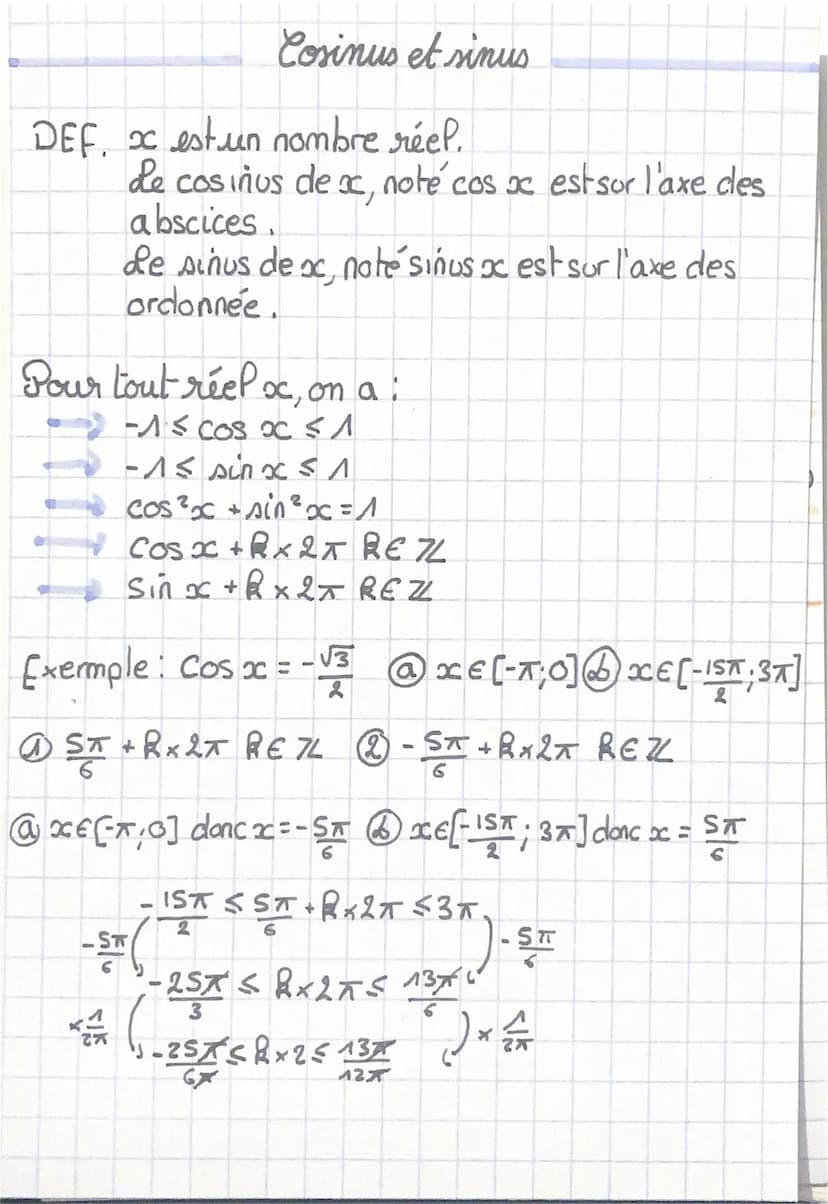 Cosinus et sinus
DEF. x est un nombre réel.
Le cosinus de x, noté cos x est sur l'axe des
abscices.
Le sinus de x, noté sinus x est sur l'axe des
ordonnée.
Pour tout réel x, on a :
→ -1 ≤ cos x ≤ 1
→ -1 ≤ sin x ≤ 1
→ cos²x + sin²x = 1
→ cos x + k × 2π k ∈ ℤ
→ sin x + k × 2π k ∈ ℤ
Exemple : cos x = -√3/2 ⓐ x ∈ [-π;0] ⓑ x ∈ [-15π/2 ; 3π]
① 5π/6 + k × 2π k ∈ ℤ ② -5π/6 + k × 2π k ∈ ℤ
ⓐ x ∈ [-π;0] donc x = -5π/6 ⓑ x ∈ [-15π/2 ; 3π] donc x = 5π/6
-15π/2 ≤ 5π/6 + k × 2π ≤ 3π
-5π/6 ( ) -5π/6
-25π/3 ≤ k × 2π ≤ 13π/6
×1/2π ( ) × 1/2π
-25π/6π ≤ k × 2 ≤ 13π/12π